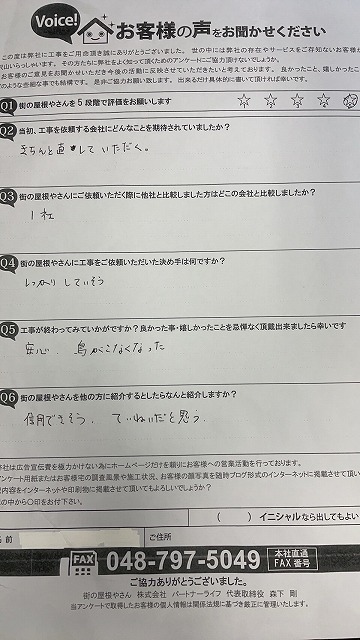 Voice!
お客様の声をお聞かせください
この度は弊社に工事をご用命頂き誠にありがとうございました。世の中には弊社の存在やサービスをご存知ないお客様が
沢山いらっしゃいます。その方たちに弊社をよく知って頂くためのアンケートにご協力頂けないでしょうか。
お客様のご意見をお聞かせいただき今後の活動に反映させていただきたいと考えております。良かったこと、嬉しかったこと
どのような些細な事でも結構です。是非ご協力お願い致します。出来るだけ具体的に書いて頂ければ幸いです。
Q1 街の屋根やさんを5段階で評価をお願いします
1 2 3 4 5
Q2 当初、工事を依頼する会社にどんなことを期待されていましたか?
きちんと直していただく。
Q3 街の屋根やさんにご依頼いただく際に他社と比較しました方はどこの会社と比較しましたか?
1社
Q4 街の屋根やさんに工事をご依頼いただいた決め手は何ですか?
しっかりしていそう
Q5 工事が終わってみていかがですか?良かった事・嬉しかったことを忌憚なく頂戴出来ましたら幸いです
安心、鳥がこなくなった
Q6 街の屋根やさんを他の方に紹介するとしたらなんと紹介しますか?
信用できそう、ていねいだと思う。
弊社は広告宣伝費を極力かけない為にホームページだけを頼りにお客様への営業活動を行っております。
アンケート用紙またはお客様宅の調査風景や施工状況、お客様の顔写真を随時ブログ形式のインターネットに掲載させて頂い
記内容をインターネットや印刷物に掲載させて頂いてもよろしいでしょうか?
の中から〇印をお付け下さい。
( ) イニシャルなら出してもよい
名前 ご住所
FAX 048-797-5049 本社直通 FAX番号
ご協力ありがとうございました。
街の屋根やさん 株式会社 パートナーライフ 代表取締役 森下 剛
当アンケートで取得したお客様の個人情報は関係法規に基づき厳正に管理いたします。